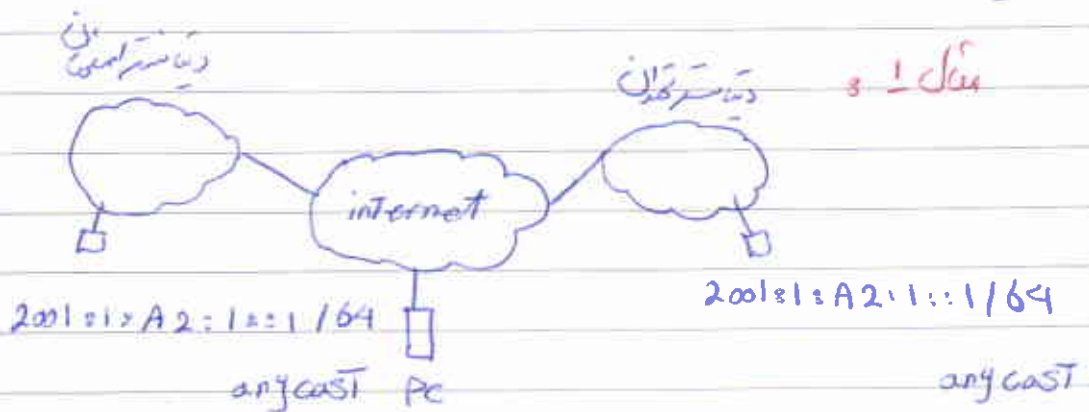 مثال 1 :
دیتاسنتر تهران
دیتاسنتر اصفهان
internet
2001:1:A2:1::1/64
2001:1:A2:1::1/64
anycast PC
anycast